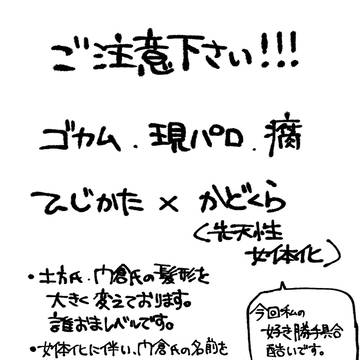 ご注意下さい!!!
ゴカム.現パロ.腐
ひじかた×かどくら
(先天性
女体化)
・土方氏、門倉氏の髪形を
大きく変えております。
誰おまレベルです。
・女体化に伴い、門倉氏の名前を
今回私の
好き勝手具合
酷いです。